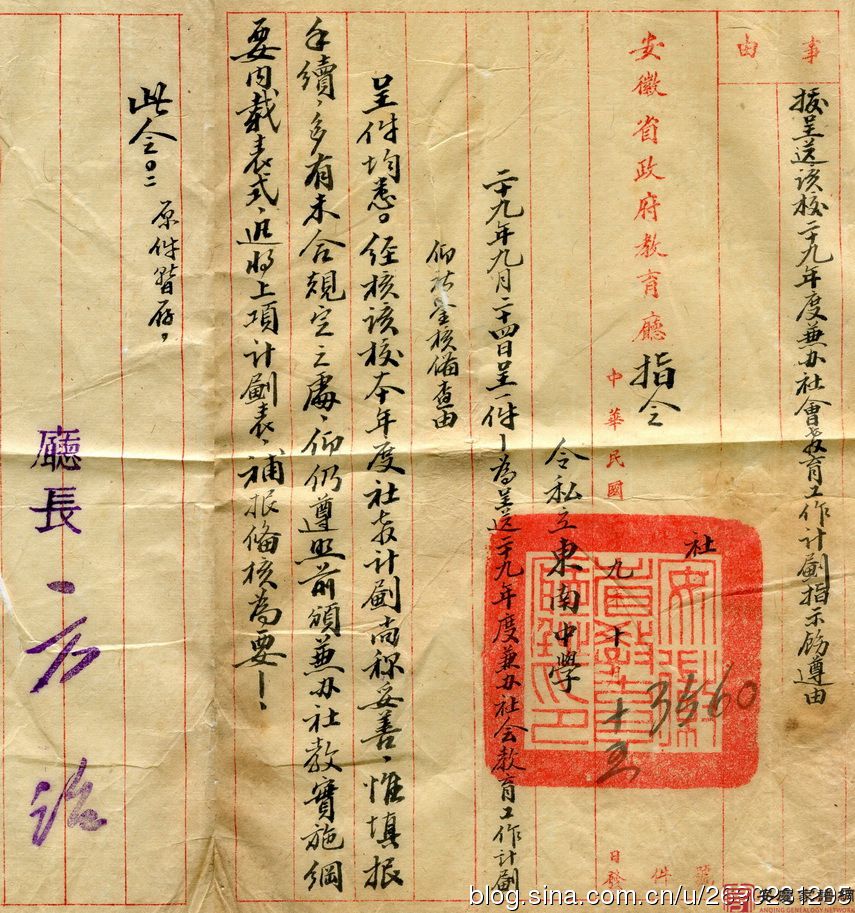 事由
據呈送該校二十九年度兼办社會教育工作計劃指示飭遵由
社 3560 號
安徽省政府教育廳指令
中華民國 九 十 十五 日發 件
令私立東南中學
二十九年九月二十四日呈一件—為呈送二十九年度兼办社会教育工作計劃
仰祈鉴核俻查由
呈件均悉。經核該校本年度社教計劃尚称妥善、惟填报
手續、多有未合規定之處、仰仍遵照前頒兼办社教實施綱
要内載表式、迅將上項計劃表、補报俻核為要—、
此令。原件暫存,
廳長 方治
blog.sina.com.cn/u/
安慶家譜網
ANQING GENEALOGY NETWORK